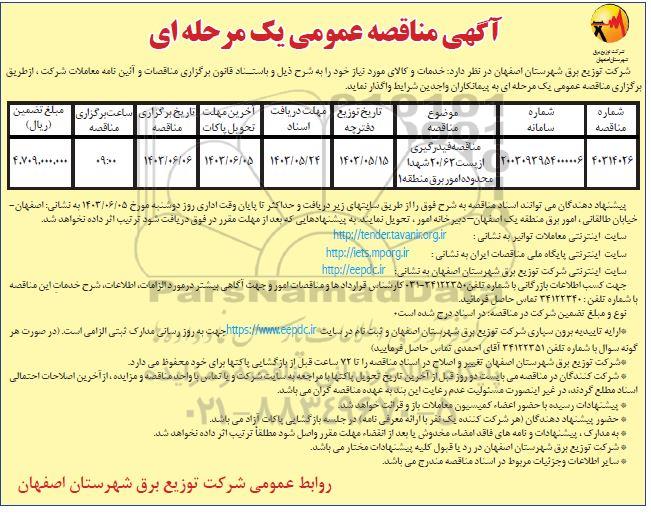 آگهی مناقصه عمومی یک مرحله ای
شرکت توزیع برق
شهرستان اصفهان
شرکت توزیع برق شهرستان اصفهان در نظر دارد: خدمات و کالای مورد نیاز خود را به شرح ذیل و باستناد قانون برگزاری مناقصات و آئین نامه معاملات شرکت ، ازطریق
برگزاری مناقصه عمومی یک مرحله ای به پیمانکاران واجدین شرایط واگذار نماید.
شماره مناقصه | شماره سامانه | موضوع مناقصه | تاریخ توزیع دفترچه | مهلت دریافت اسناد | آخرین مهلت تحویل پاکات | تاریخ برگزاری مناقصه | ساعت برگزاری مناقصه | مبلغ تضمین (ریال)
۴۰۳۱۴۰۲۶ | ۲۰۰۳۰۹۳۹۵۴۰۰۰۰۰۶ | مناقصه فیدرگیری از پست ۲۰/۶۳ شهدا محدوده امور برق منطقه ۱ | ۱۴۰۳/۰۵/۱۵ | ۱۴۰۳/۰۵/۲۴ | ۱۴۰۳/۰۶/۰۵ | ۱۴۰۳/۰۶/۰۶ | ۰۹:۰۰ | ۴.۷۰۹.۰۰۰.۰۰۰
پیشنهاد دهندگان می توانند اسناد مناقصه به شرح فوق را از طریق سایتهای زیر دریافت و حداکثر تا پایان وقت اداری روز دوشنبه مورخ ۱۴۰۳/۰۶/۰۵ به نشانی: اصفهان-
خیابان طالقانی ، امور برق منطقه یک اصفهان– دبیرخانه امور ، تحویل نمایند. به پیشنهادهایی که بعد از مهلت مقرر در فوق دریافت شود ترتیب اثر داده نخواهد شد.
سایت اینترنتی معاملات توانیر به نشانی : http://tender.tavanir.org.ir
سایت اینترنتی پایگاه ملی مناقصات ایران به نشانی : http://iets.mporg.ir
سایت اینترنتی شرکت توزیع برق شهرستان اصفهان به نشانی: http://eepdc.ir
جهت کسب اطلاعات بازرگانی با شماره تلفن ۳۴۱۲۲۳۵۰-۰۳۱ کارشناس قرارداد ها و مناقصات امور و جهت آگاهی بیشتر درمورد الزامات، اطلاعات، شرح خدمات این مناقصه
با شماره تلفن : ۳۴۱۲۲۳۴۰ تماس حاصل فرمائید.
نوع و مبلغ تضمین شرکت در مناقصه: در اسناد درج شده است
*ارایه تاییدیه برون سپاری شرکت توزیع برق شهرستان اصفهان و ثبت نام در سایت https://www.eepdc.ir جهت به روز رسانی مدارک ثبتی الزامی است. (در صورت هر
گونه سوال با شماره تلفن ۳۴۱۲۲۳۵۱ آقای احمدی تماس حاصل فرمایید)
*شرکت توزیع برق شهرستان اصفهان تغییر و اصلاح در اسناد مناقصه را تا ۷۲ ساعت قبل از بازگشایی پاکتها برای خود محفوظ می دارد.
*شرکت کنندگان در مناقصه می بایست دو روز قبل از آخرین تاریخ تحویل پاکتها با مراجعه به سایت شرکت و یا تماس با واحد مناقصه و مزایده ، از آخرین اصلاحات احتمالی
اسناد مطلع گردند، در غیر اینصورت مسئولیت عدم رعایت این بند به عهده مناقصه گران می باشد.
* پیشنهادات رسیده با حضور اعضاء کمیسیون معاملات باز و قرائت خواهد شد.
* حضور پیشنهاد دهندگان (هر شرکت کننده یک نفر با ارائه معرفی نامه) در جلسه بازگشایی پاکات آزاد می باشد.
* به مدارک ، پیشنهادات و نامه های فاقد امضاء، مخدوش یا بعد از انقضاء مهلت مقرر واصل شود مطلقاً ترتیب اثر داده نخواهد شد.
* شرکت توزیع برق شهرستان اصفهان در رد یا قبول کلیه پیشنهادات مختار می باشد.
* سایر اطلاعات وجزئیات مربوط در اسناد مناقصه مندرج می باشد.
روابط عمومی شرکت توزیع برق شهرستان اصفهان
ParsNamadData
۰۲۱-۸۸۳۴۹۶۷۰-۵